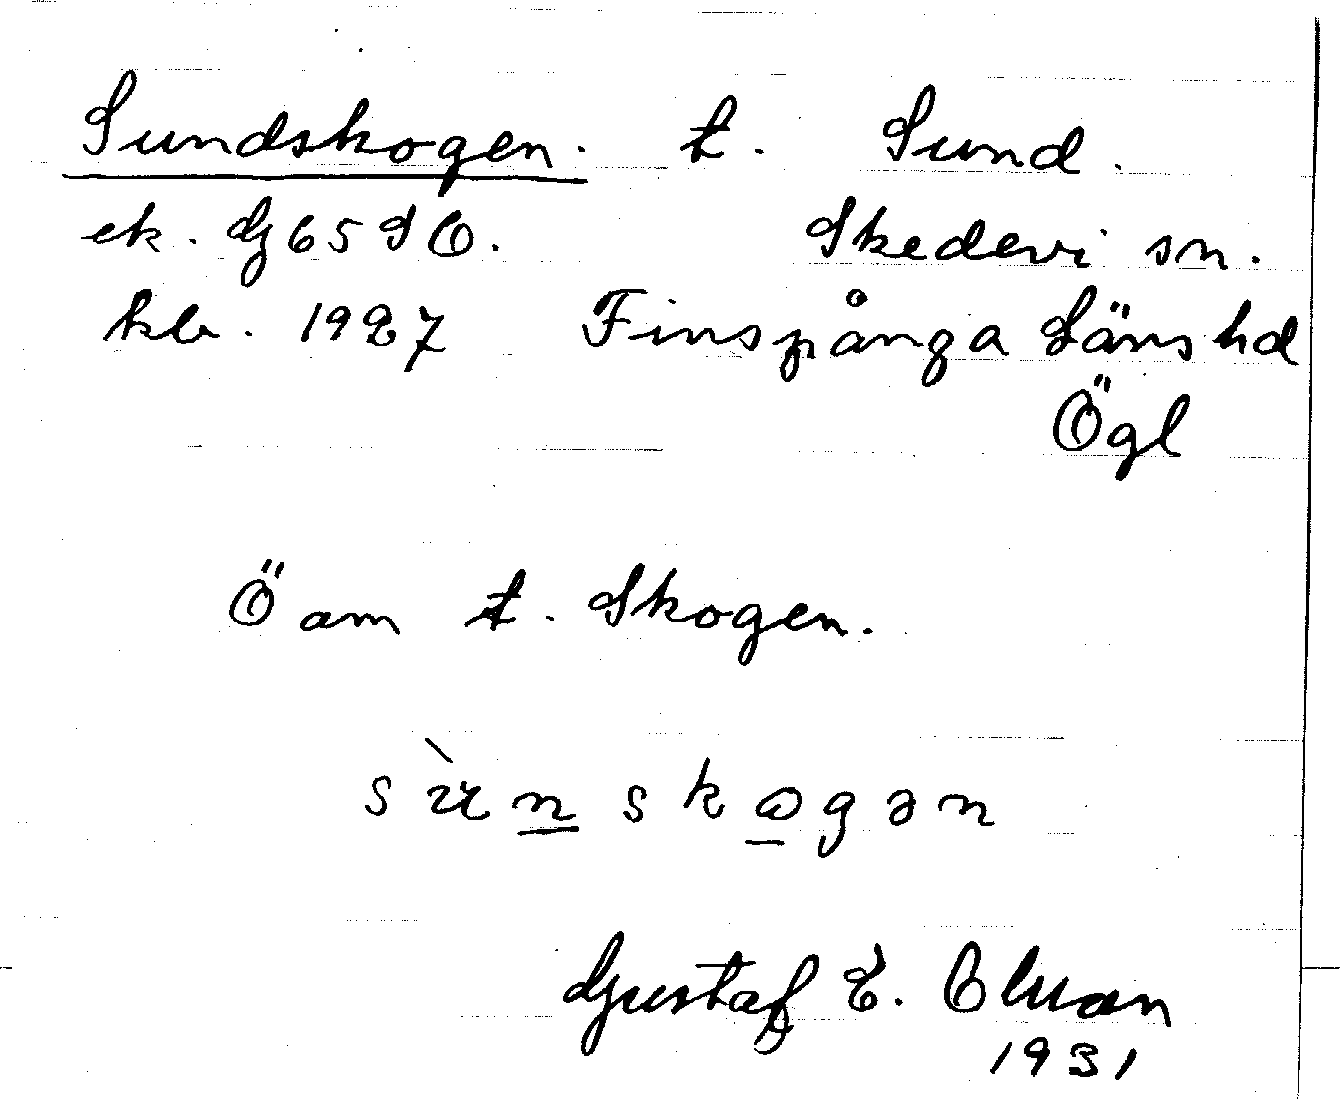 Sundskogen. t. Sund.
ek. G65 SO. Skedevi sn.
kb. 1927 Finspånga Läns hd
Ögl
Öam t. Skogen.
sùnskogən
Gustaf E.
1931